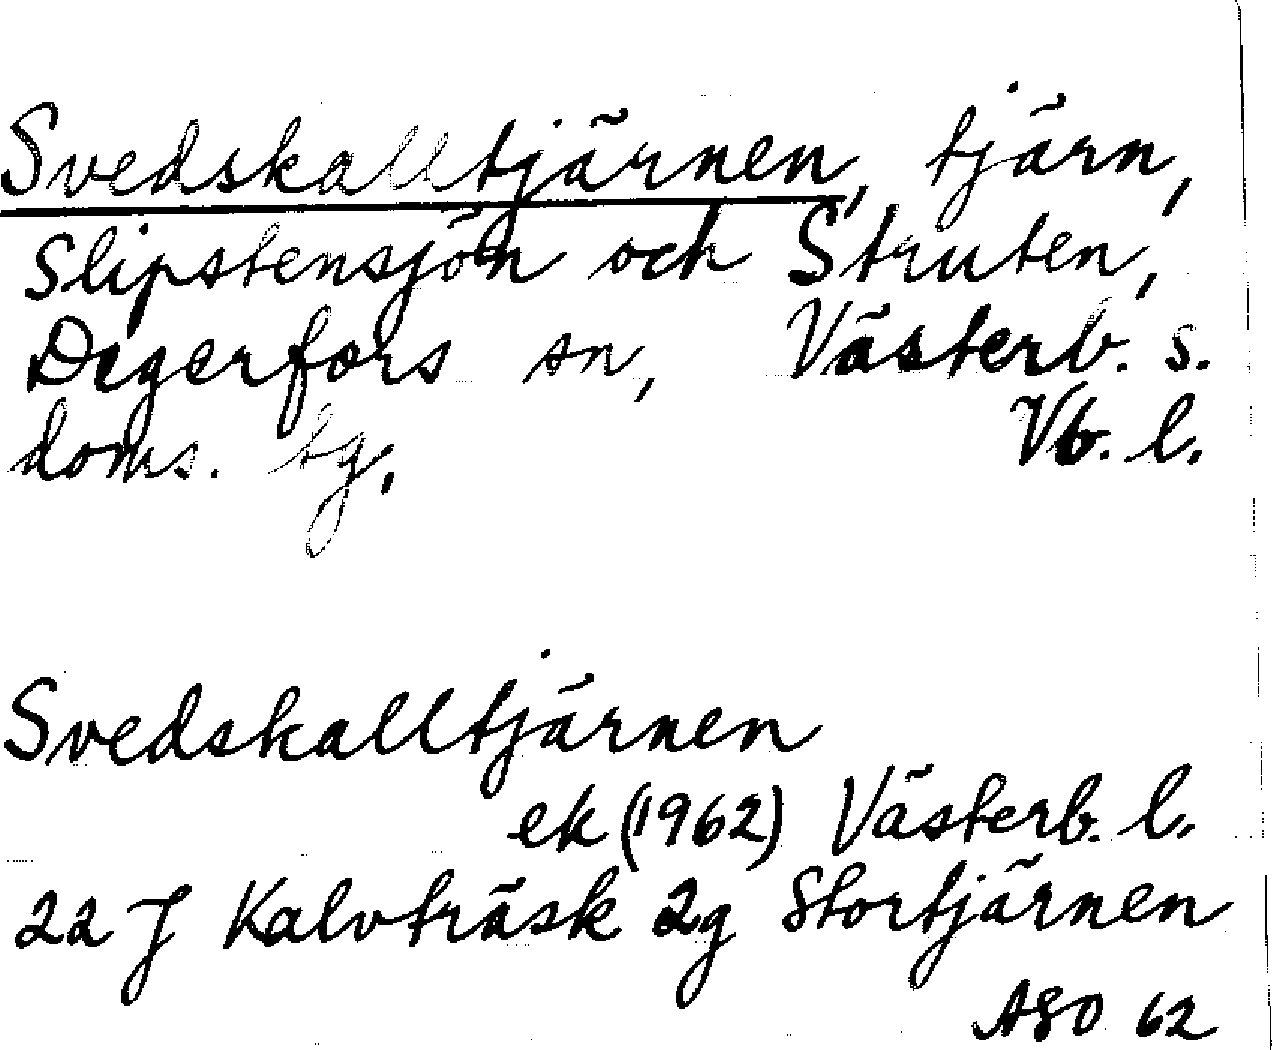 Svedskalltjärnen, tjärn,
Slipstensjön och Struten,
Degerfors sn, Västerb. s.
doms. tg, Vb. l.
Svedskalltjärnen
ek (1962) Västerb. l.
22 J Kalvträsk 2g Stortjärnen
ASO 62